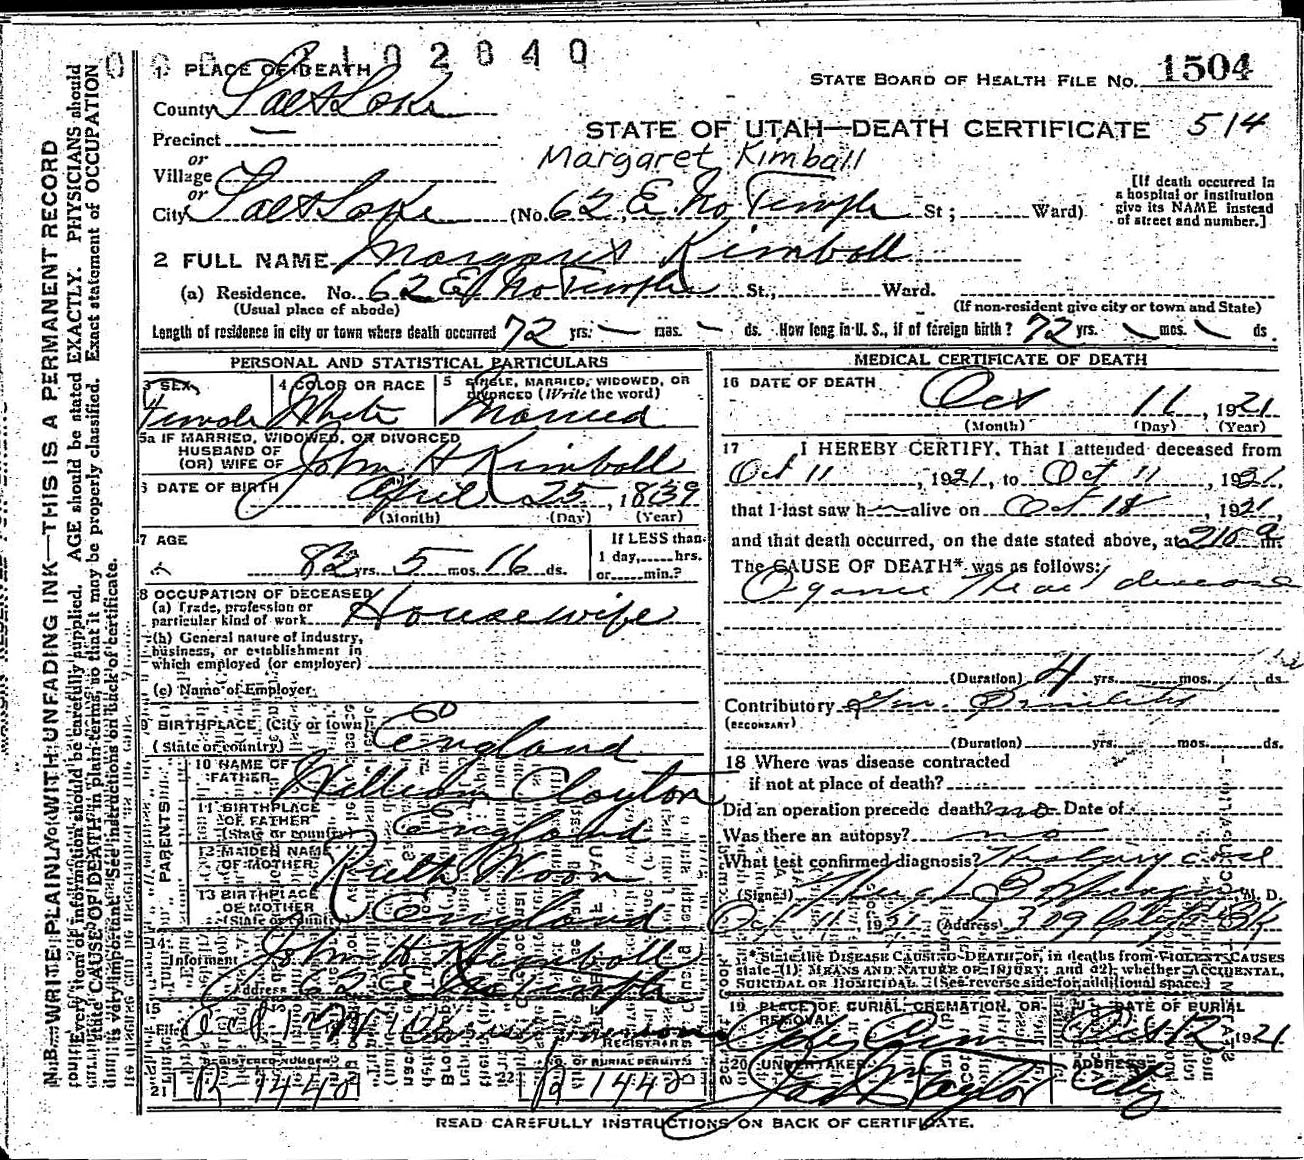 102840
1 PLACE OF DEATH
STATE BOARD OF HEALTH FILE No. 1504
County Salt Lake
STATE OF UTAH—DEATH CERTIFICATE 514
Precinct
Margaret Kimball
or
Village
or
City Salt Lake (No. 62 E No Temple St; Ward)
[If death occurred in
a hospital or institution
give its NAME instead
of street and number.]
2 FULL NAME Margaret Kimball
(a) Residence. No. 62 E No Temple St., Ward.
(Usual place of abode) (If non-resident give city or town and State)
Length of residence in city or town where death occurred 72 yrs. — mos. — ds. How long in U. S., if of foreign birth? 72 yrs. — mos. — ds
PERSONAL AND STATISTICAL PARTICULARS
3 SEX Female
4 COLOR OR RACE White
5 SINGLE, MARRIED, WIDOWED, OR
DIVORCED (Write the word)
Married
5a IF MARRIED, WIDOWED, OR DIVORCED
HUSBAND OF
(OR) WIFE OF John H Kimball
6 DATE OF BIRTH April 25, 1839
(Month) (Day) (Year)
7 AGE
82 yrs. 5 mos. 16 ds.
If LESS than
1 day, hrs.
or min.?
8 OCCUPATION OF DECEASED
(a) Trade, profession or
particular kind of work Housewife
(b) General nature of industry,
business, or establishment in
which employed (or employer)
(c) Name of Employer
9 BIRTHPLACE (City or town)
(State or country) England
PARENTS
10 NAME OF
FATHER William Clayton
11 BIRTHPLACE
OF FATHER
(State or country) England
12 MAIDEN NAME
OF MOTHER Ruth Moon
13 BIRTHPLACE
OF MOTHER
(State or country) England
14
Informant John H Kimball
Address 62 E No Temple
15
Filed
REGISTRAR
REGISTERED NUMBER
21 B-1440
No. OF BURIAL PERMIT
B 1440
MEDICAL CERTIFICATE OF DEATH
16 DATE OF DEATH
Oct 11, 1921
(Month) (Day) (Year)
17 I HEREBY CERTIFY, That I attended deceased from
Oct 11, 1921, to Oct 11, 1921,
that I last saw h alive on Oct, 1921,
and that death occurred, on the date stated above, at 210 a m.
The CAUSE OF DEATH* was as follows:
Organic Heart disease
(Duration) 4 yrs. mos. ds
Contributory
(SECONDARY)
(Duration) yrs. mos. ds.
18 Where was disease contracted
if not at place of death?
Did an operation precede death? no Date of
Was there an autopsy? no
What test confirmed diagnosis?
(Signed) M. D.
Oct 11, 1921 (Address) 309
*State the DISEASE CAUSING DEATH, or, in deaths from VIOLENT CAUSES
state (1) MEANS AND NATURE OF INJURY; and (2) whether ACCIDENTAL,
SUICIDAL OR HOMICIDAL. (See reverse side for additional space.)
19 PLACE OF BURIAL, CREMATION, OR
REMOVAL
DATE OF BURIAL
Oct 12 1921
20 UNDERTAKER
Taylor
ADDRESS
City
READ CAREFULLY INSTRUCTIONS ON BACK OF CERTIFICATE.
N.B.—WRITE PLAINLY WITH UNFADING INK—THIS IS A PERMANENT RECORD
Every item of information should be carefully supplied. AGE should be stated EXACTLY. PHYSICIANS should
state CAUSE OF DEATH in plain terms, so that it may be properly classified. Exact statement of OCCUPATION
is very important. See instructions on back of certificate.